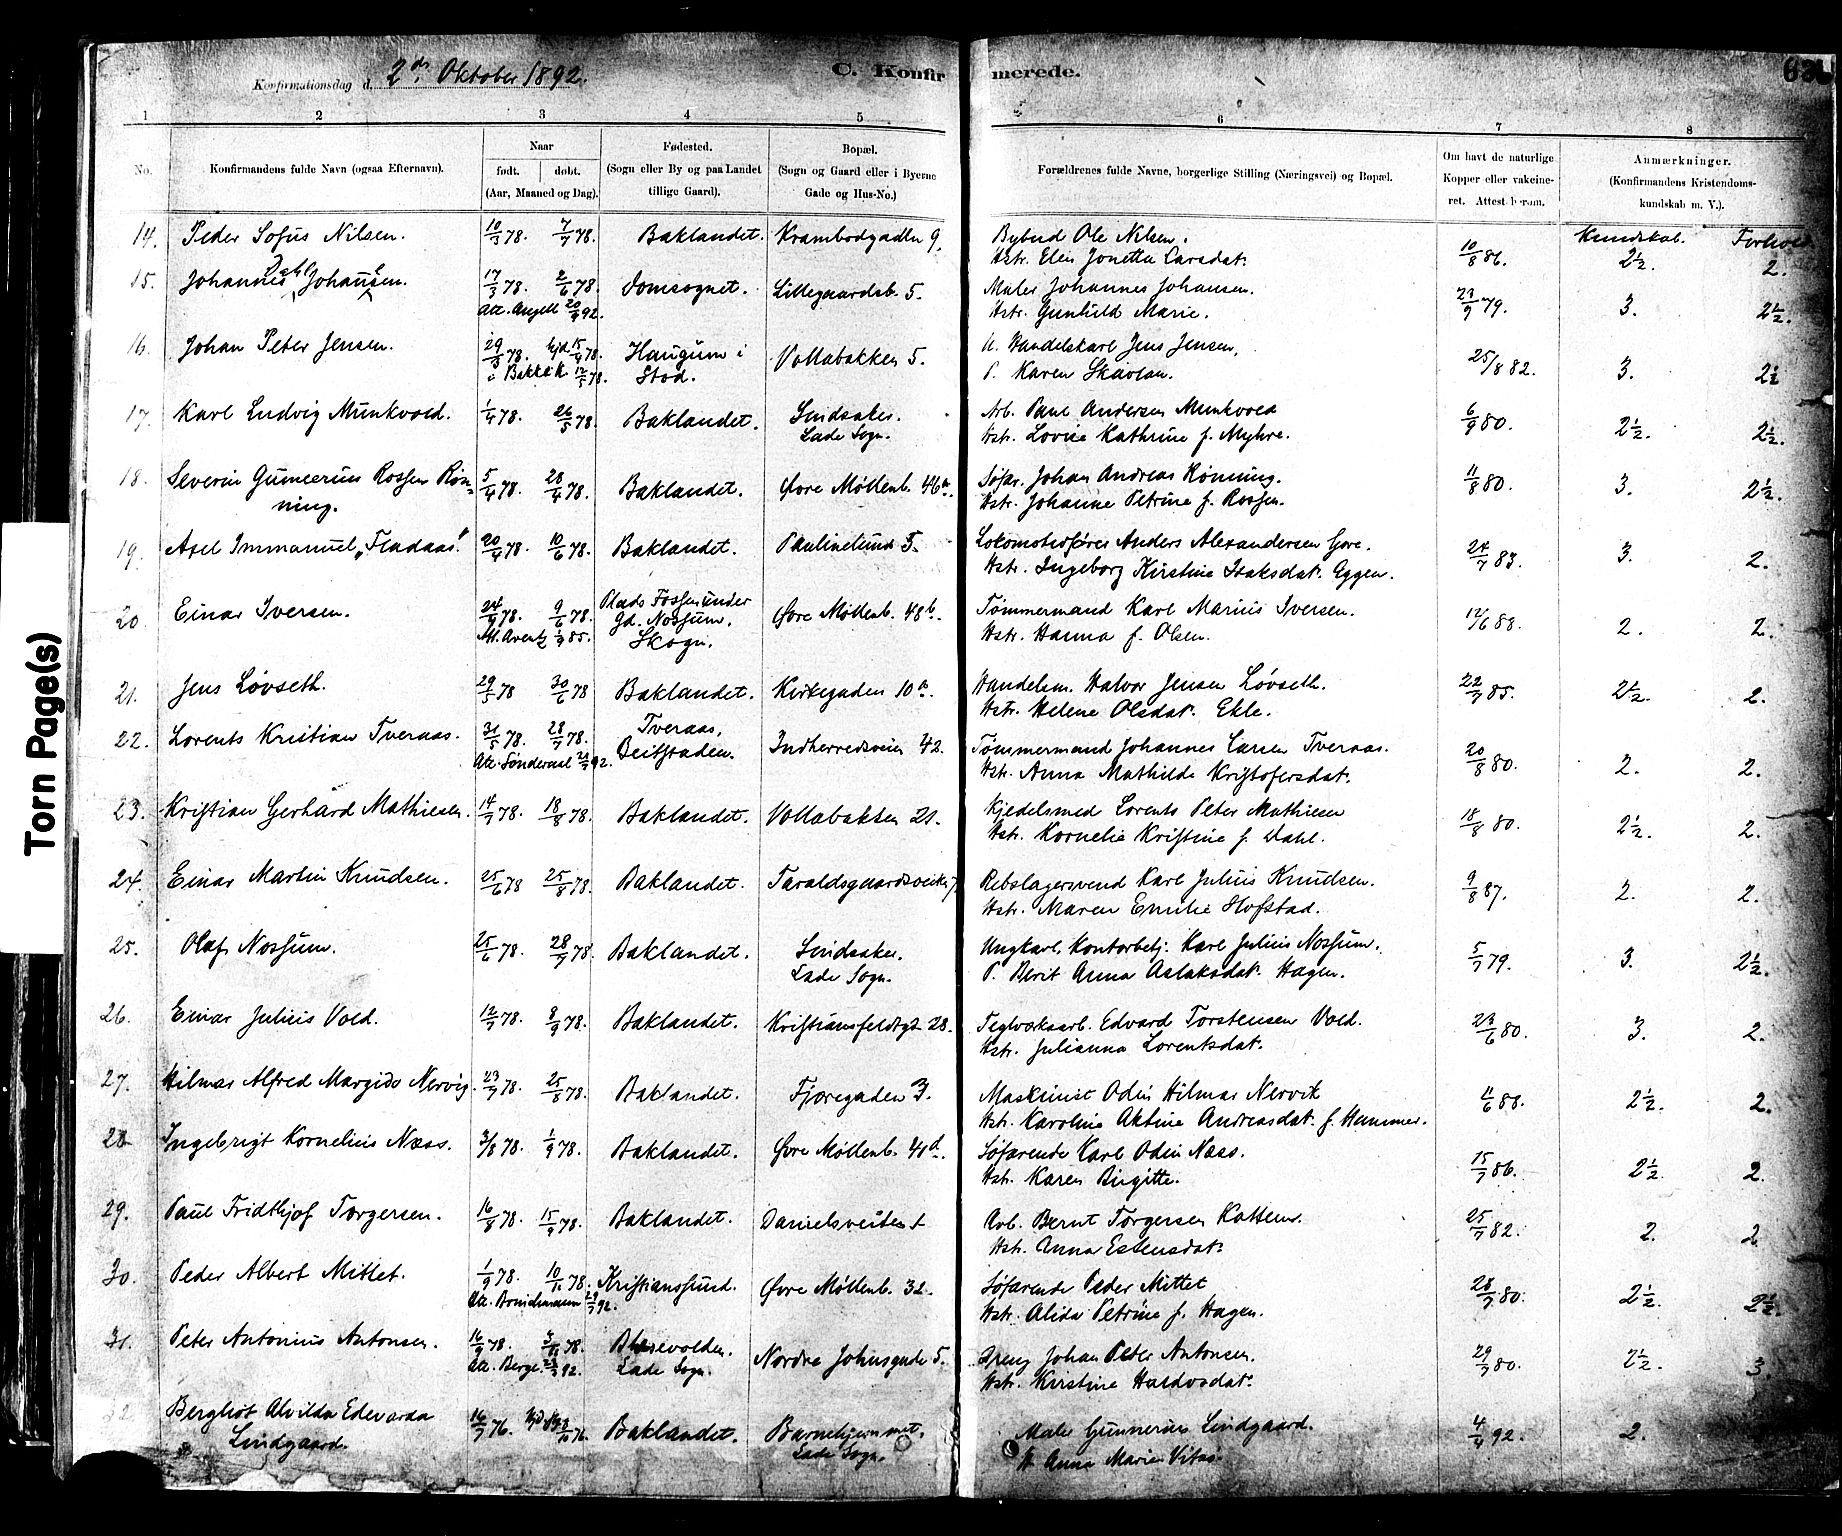 Konfirmationsdag d. 2den Oktober 1892. C. Konfirmerede.
1 2 3 4 5 6 7 8
No. Konfirmandens fulde Navn (ogsaa Efternavn). Naar født. døbt. (Aar, Maaned og Dag). Fødested. (Sogn eller By og paa Landet tillige Gaard). Bopæl. (Sogn og Gaard eller i Byerne Gade og Hus-No.) Forældrenes fulde Navne, borgerlige Stilling (Næringsvei) og Bopæl. Om havt de naturlige Kopper eller vakcineret. Attest herom. Anmærkninger. (Konfirmandens Kristendomskundskab m. V.).
Kundskab. Forhold
14. Peder Sofus Nilsen. 10/3 78. 7/7 78. Baklandet. Krambodgaden 9. Bybud Ole Nilsen. 10/8 86. 2½. 2.
Hstr. Elen Jonetta Larsdat.
15. Johannes Dahl Johansen. 17/3 78. 2/6 78. Domsognet. Lillegaardsb. 5. Maler Johannes Johansen. 23/9 79. 3. 2½.
Att. Angell 20/9 92. Hstr. Gunhild Marie.
16. Johan Peter Jensen. 29/3 78. hjd. 15/4 78. Haugum i Vollabakken 5. U. Handelskarl Jens Jensen, 25/8 82. 3. 2½
i Bakke K. 12/5 78. Stod. P. Karen Skavlan.
17. Karl Ludvig Munkvold. 1/4 78. 26/5 78. Baklandet. Smidsaker. Arb. Paul Andersen Munkvold 6/9 80. 2½. 2½.
Lade Sogn. Hstr. Lovise Kathrine f. Myhre.
18. Severin Gunerius Rossen Røn- 5/4 78. 28/4 78. Baklandet. Øvre Møllenb. 46a. Søfar. Johan Andreas Rønning. 11/8 80. 3. 2½.
ning. Hstr. Johanne Petrine f. Rossen.
19. Axel Immanuel "Fladaas". 20/4 78. 10/6 78. Baklandet. Paulinelund 5. Lokomotivfører Anders Alexandersen Gore. 24/7 83. 3. 2.
Hstr. Ingeborg Kirstine Isaksdat. Eggen.
20. Einar Iversen. 24/4 78. 9/6 78. Plads Fossen under Øvre Møllenb. 48b. Tømmermand Karl Marius Iversen. 12/6 88. 2. 2.
Gd. Nossum,
Skogn. Hstr. Hanna f. Olsen.
21. Jens Løvseth. 29/5 78 30/6 78 Baklandet. Kirkegaden 10a. Handelsm. Halvor Jensen Løvseth. 22/7 85. 2½. 2.
Hstr. Helene Olsdat. Ekle.
22. Lorents Kristian Tveraas. 31/5 78. 28/7 78. Tveraas, Indherredsveien 42. Tømmermand Johannes Larsen Tveraas. 20/8 80. 2. 2.
Beitstaden. Hstr. Anna Mathilde Kristofersdat.
23. Kristian Gerhard Mathiesen. 14/7 78. 18/8 78. Baklandet. Vollabakken 21. Kjedelsmed Lorents Peter Mathiesen 18/8 80. 2½. 2.
Hstr. Kornelie Kristine f. Dahl.
24. Einar Martin Knudsen. 25/6 78 25/8 78. Baklandet. Taraldsgaardsveiten 7 Rebslagersvend Karl Julius Knudsen. 9/8 87. 2. 2.
Hstr. Maren Emilie Hofstad.
25. Olaf Nossum. 25/6 78. 28/7 78. Baklandet. Smidsaker. Ungkarl. Kontorbetj. Karl Julius Nossum. 5/7 79. 3. 2½.
Lade Sogn. P. Berit Anna Aslaksdat. Hagen.
26. Einar Julius Vold. 12/7 78. 8/9 78. Baklandet. Kristiansfeldtgt 28. Teglverksarb. Edvard Torstensen Vold. 23/6 80. 3. 2.
Hstr. Julianna Lorentsdat.
27. Hilmar Alfred Margido Nervig. 23/7 78. 25/8 78. Baklandet. Fjæregaden 3. Maskinist Odin Hilmar Nervik 11/6 88. 2½. 2.
Hstr. Karoline Aktine Andreasdat. f. Hammer.
28 Ingebrigt Kornelius Næss. 3/8 78. 1/9 78. Baklandet. Øvre Møllenb. 41d. Søfarende Karl Odin Næss. 15/7 86. 2½. 2.
Hstr. Karen Birgitte.
29. Paul Fridthjof Torgersen. 16/8 78. 15/9 78. Baklandet. Danielsveiten 1 Arb. Bernt Torgersen Kattem. 25/7 82. 2. 2
Hstr. Anna Estensdat.
30. Peder Albert Mittet. 1/9 78. 10/11 78. Kristianssund. Øvre Møllenb. 32. Søfarende Peder Mittet 28/7 80. 2½. 2½.
Hstr. Alida Petrine f. Hagen.
31. Peter Antonius Antonsen. 16/9 78. 3/11 78. Blæsevolden. Nordre Johnsgade 5. Dreng Johan Peter Antonsen. 29/7 80. 2½. 3.
Lade Sogn. Hstr. Kirstine Haldosdat.
32. Berghot Alvilda Edevarda 16/7 76. Baklandet. Barnehjemmet, Maler Gunnerius Lindgaard. 4/4 92. 2.
Lindgaard. Lade Sogn. H. Anna Marie Vitsø.
Torn Page(s)